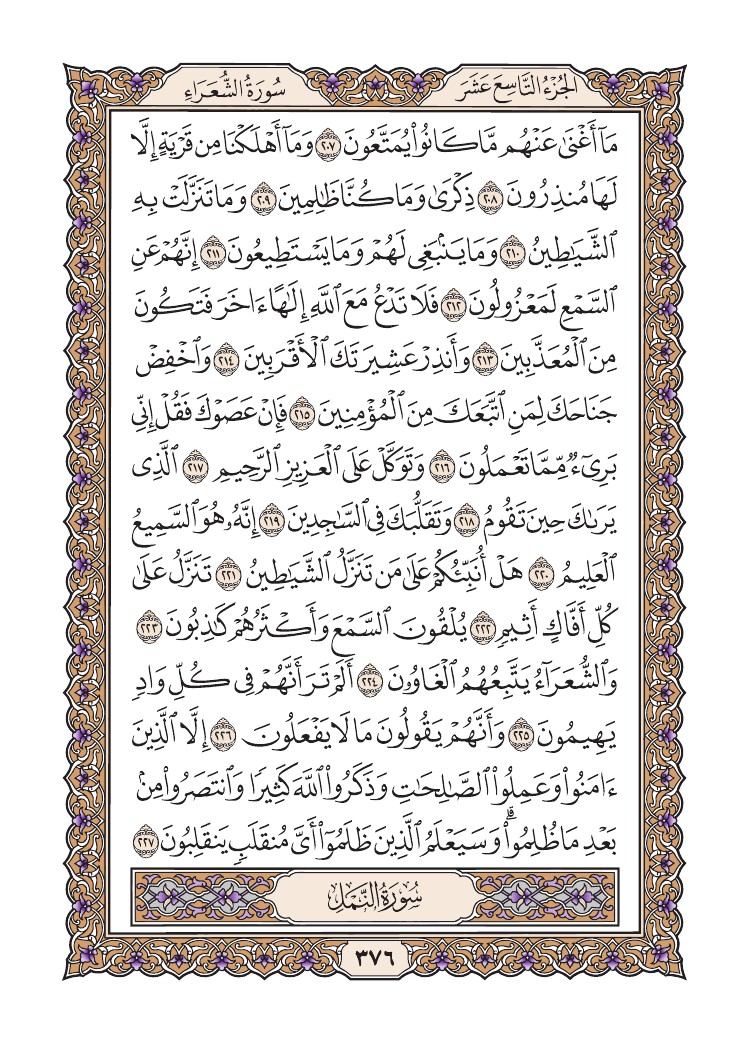 الجُزْءُ التَّاسِعَ عَشَرَ
سُورَةُ الشُّعَرَاءِ
مَآ أَغْنَىٰ عَنْهُم مَّا كَانُواْ يُمَتَّعُونَ ٢٠٧ وَمَآ أَهْلَكْنَا مِن قَرْيَةٍ إِلَّا
لَهَا مُنذِرُونَ ٢٠٨ ذِكْرَىٰ وَمَا كُنَّا ظَٰلِمِينَ ٢٠٩ وَمَا تَنَزَّلَتْ بِهِ
ٱلشَّيَٰطِينُ ٢١٠ وَمَا يَنۢبَغِى لَهُمْ وَمَا يَسْتَطِيعُونَ ٢١١ إِنَّهُمْ عَنِ
ٱلسَّمْعِ لَمَعْزُولُونَ ٢١٢ فَلَا تَدْعُ مَعَ ٱللَّهِ إِلَٰهًا ءَاخَرَ فَتَكُونَ
مِنَ ٱلْمُعَذَّبِينَ ٢١٣ وَأَنذِرْ عَشِيرَتَكَ ٱلْأَقْرَبِينَ ٢١٤ وَٱخْفِضْ
جَنَاحَكَ لِمَنِ ٱتَّبَعَكَ مِنَ ٱلْمُؤْمِنِينَ ٢١٥ فَإِنْ عَصَوْكَ فَقُلْ إِنِّى
بَرِىٓءٌ مِّمَّا تَعْمَلُونَ ٢١٦ وَتَوَكَّلْ عَلَى ٱلْعَزِيزِ ٱلرَّحِيمِ ٢١٧ ٱلَّذِى
يَرَىٰكَ حِينَ تَقُومُ ٢١٨ وَتَقَلُّبَكَ فِى ٱلسَّٰجِدِينَ ٢١٩ إِنَّهُۥ هُوَ ٱلسَّمِيعُ
ٱلْعَلِيمُ ٢٢٠ هَلْ أُنَبِّئُكُمْ عَلَىٰ مَن تَنَزَّلُ ٱلشَّيَٰطِينُ ٢٢١ تَنَزَّلُ عَلَىٰ
كُلِّ أَفَّاكٍ أَثِيمٍ ٢٢٢ يُلْقُونَ ٱلسَّمْعَ وَأَكْثَرُهُمْ كَٰذِبُونَ ٢٢٣
وَٱلشُّعَرَآءُ يَتَّبِعُهُمُ ٱلْغَاوُۥنَ ٢٢٤ أَلَمْ تَرَ أَنَّهُمْ فِى كُلِّ وَادٍ
يَهِيمُونَ ٢٢٥ وَأَنَّهُمْ يَقُولُونَ مَا لَا يَفْعَلُونَ ٢٢٦ إِلَّا ٱلَّذِينَ
ءَامَنُواْ وَعَمِلُواْ ٱلصَّٰلِحَٰتِ وَذَكَرُواْ ٱللَّهَ كَثِيرًا وَٱنتَصَرُواْ مِنۢ
بَعْدِ مَا ظُلِمُواْ ۗ وَسَيَعْلَمُ ٱلَّذِينَ ظَلَمُوٓاْ أَىَّ مُنقَلَبٍ يَنقَلِبُونَ ٢٢٧
سُورَةُ النَّمْلِ
٣٧٦